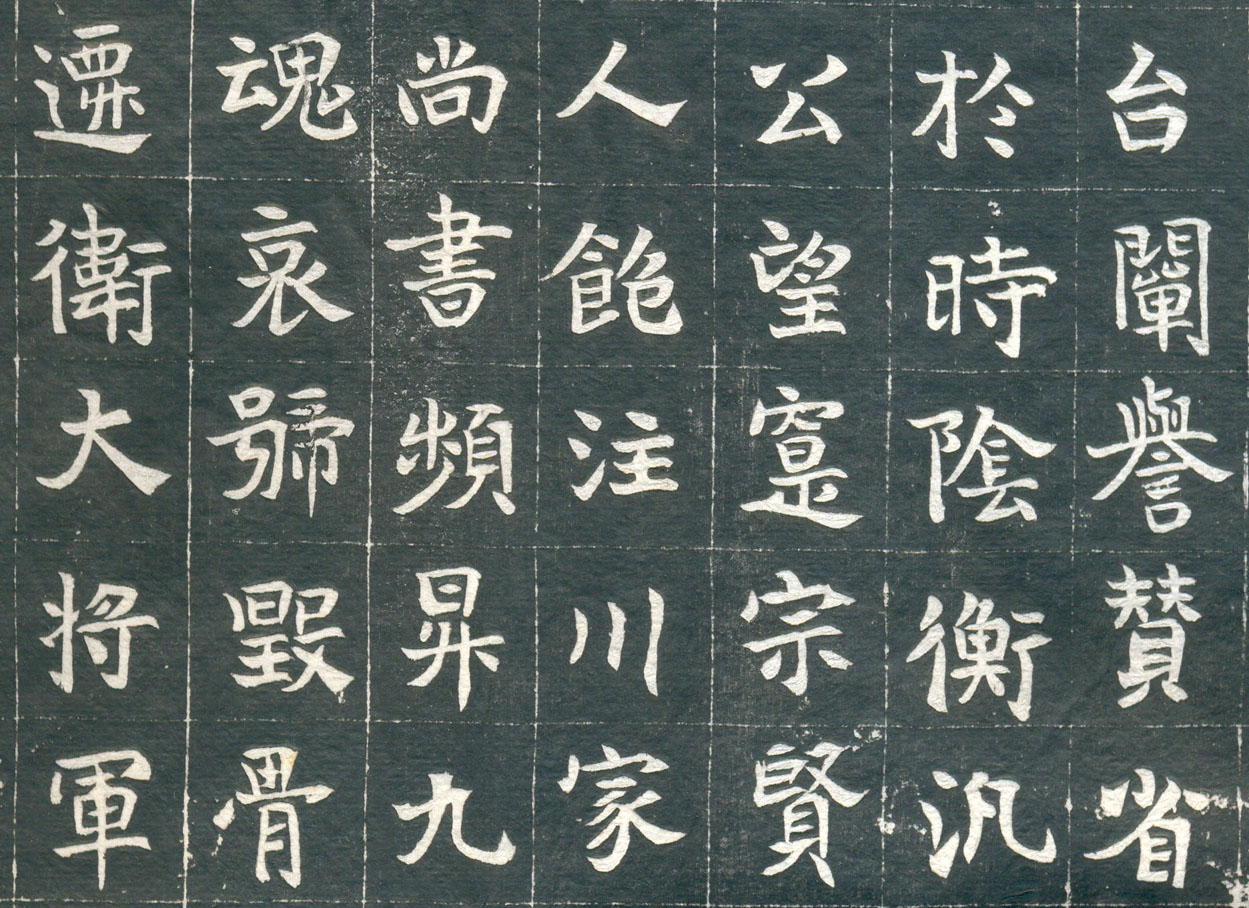 台闡譽賛省
於時陰衡汎
公望寔宗賢
人飽注川家
尚書頻昇九
魂哀號毀骨
遷衛大将軍